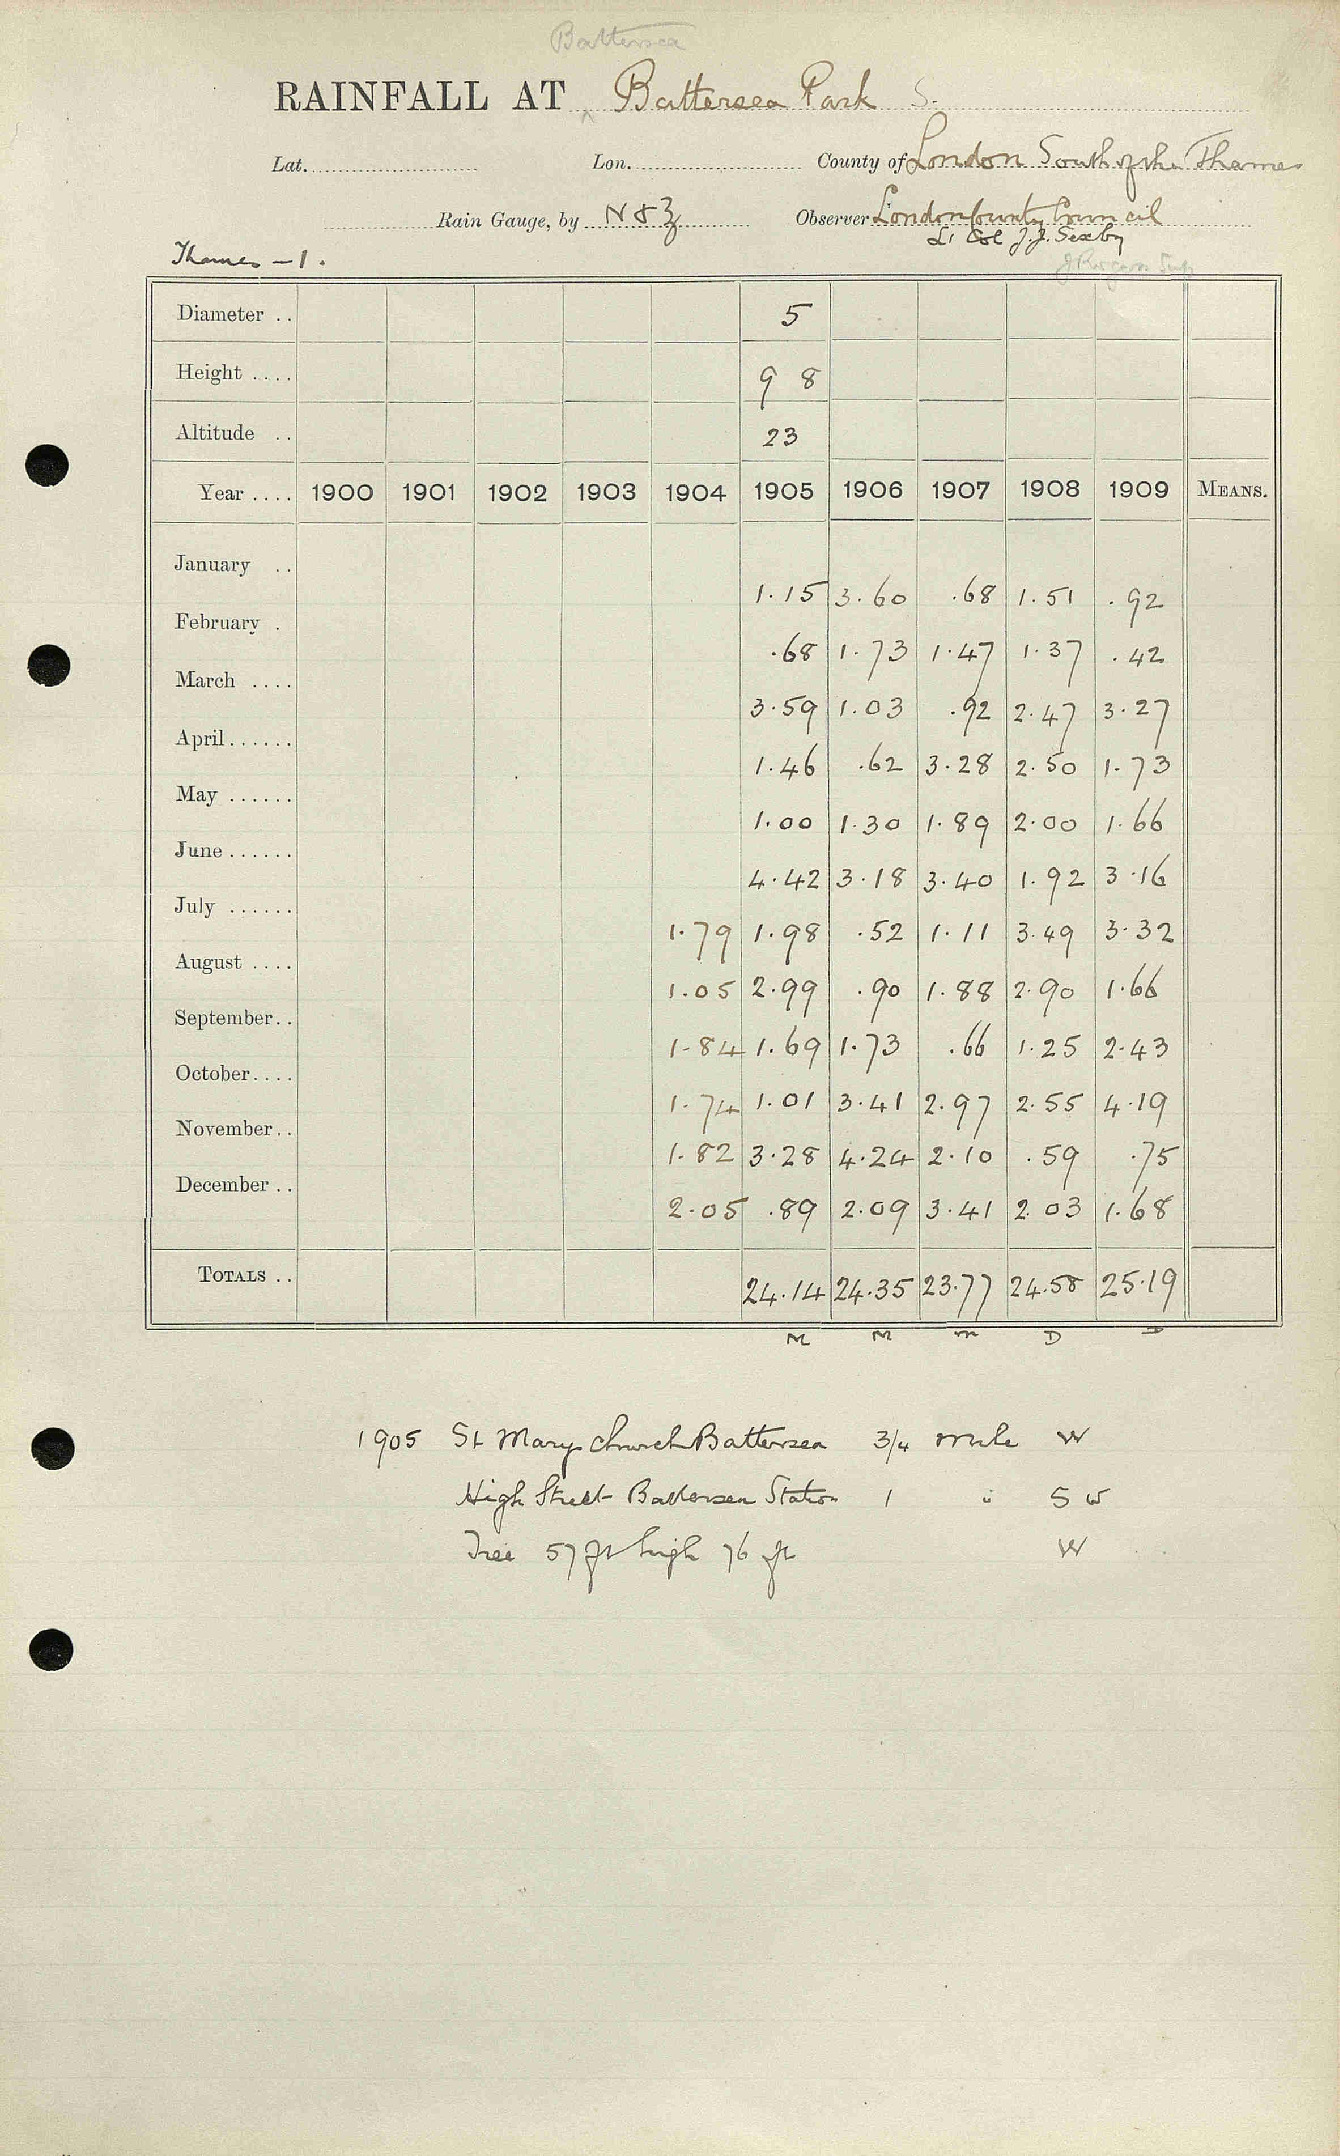 Battersea
RAINFALL AT Battersea Park S.
Lat. Lon. County of London South of the Thames
Rain Gauge, by N & Z Observer London County Council
Lt Col J. J. Sexby
Thames - 1. J Rogers Supt
Diameter .. 5
Height .... 9 8
Altitude .. 23
Year .... 1900 1901 1902 1903 1904 1905 1906 1907 1908 1909 MEANS.
January .. 1.15 3.60 .68 1.51 .92
February . .68 1.73 1.47 1.37 .42
March .... 3.59 1.03 .92 2.47 3.27
April...... 1.46 .62 3.28 2.50 1.73
May ...... 1.00 1.30 1.89 2.00 1.66
June...... 4.42 3.18 3.40 1.92 3.16
July ...... 1.79 1.98 .52 1.11 3.49 3.32
August .... 1.05 2.99 .90 1.88 2.90 1.66
September.. 1.84 1.69 1.73 .66 1.25 2.43
October.... 1.74 1.01 3.41 2.97 2.55 4.19
November.. 1.82 3.28 4.24 2.10 .59 .75
December .. 2.05 .89 2.09 3.41 2.03 1.68
TOTALS .. 24.14 24.35 23.77 24.58 25.19
M M m D D
1905 St Mary Church Battersea 3/4 mile W
High Street Battersea Station 1 " S W
Tree 57 ft high 76 ft W